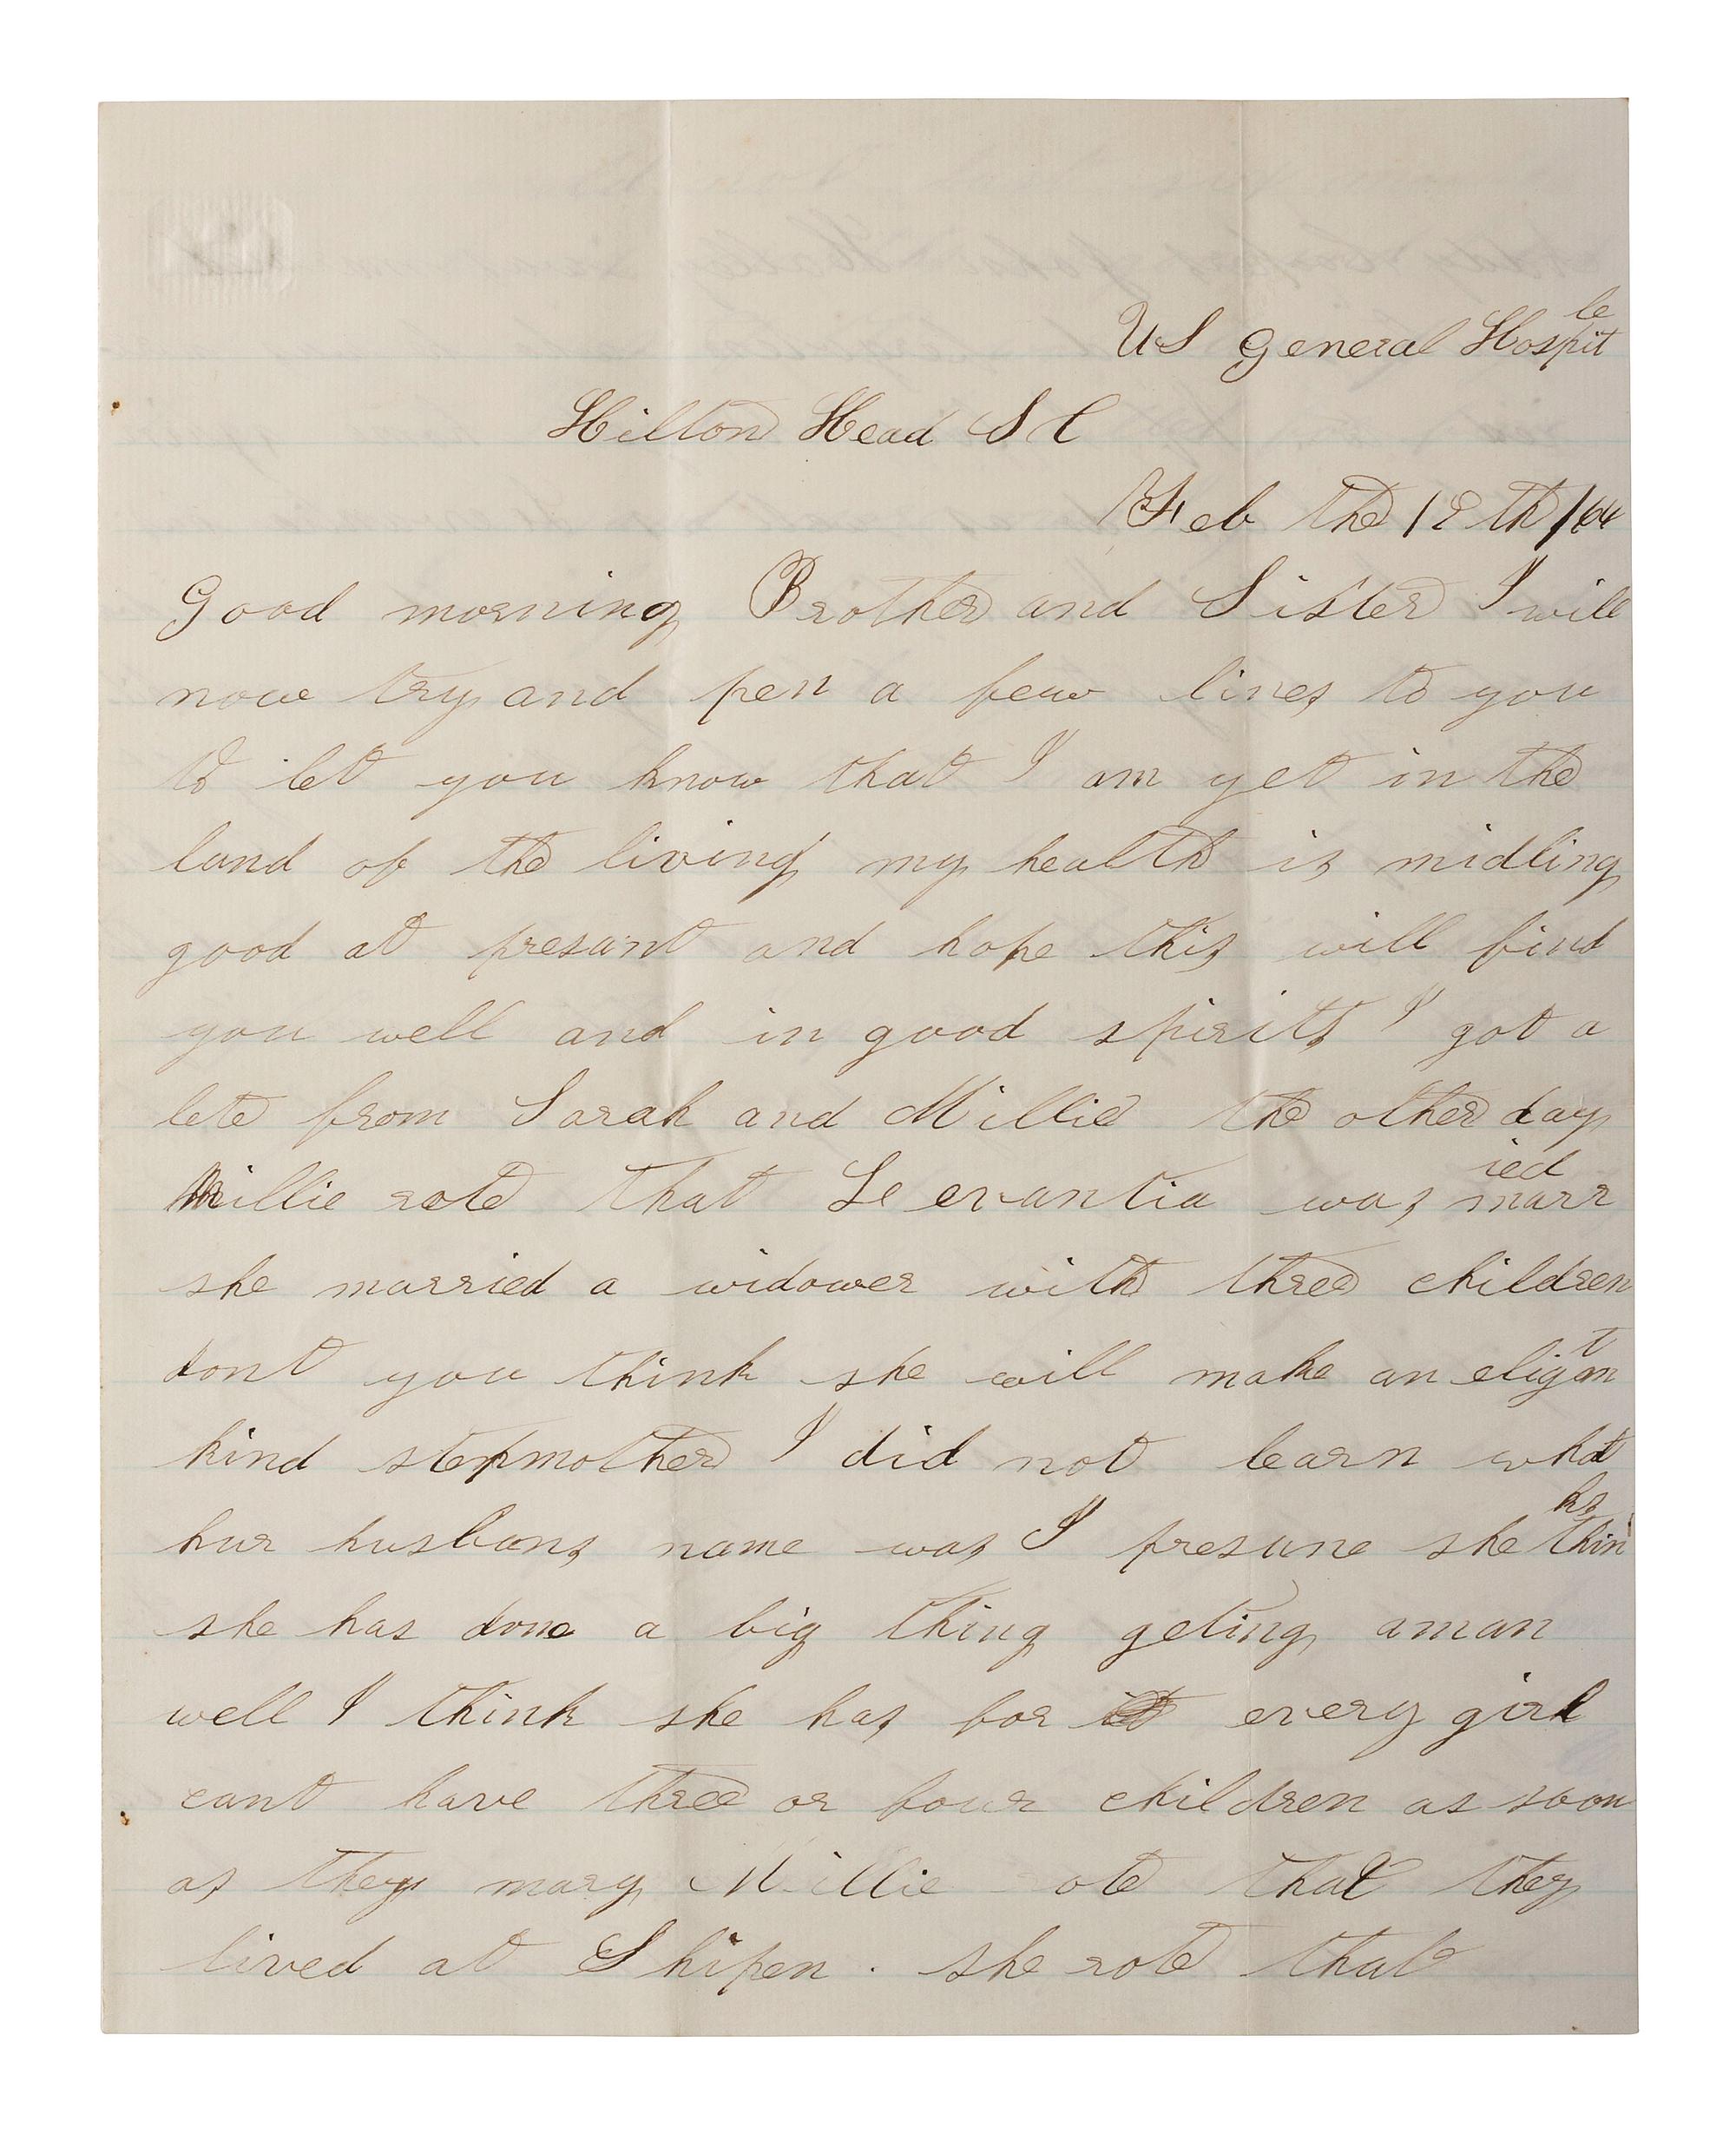 US General Hospitle
Hilton Head S C
Feb the 18th /64
Good morning Brother and Sister I will
now try and pen a few lines to you
to let you know that I am yet in the
land of the living my health is midling
good at presant and hope this will find
you well and in good spirits I got a
lete from Sarah and Millie the other day
Millie rote that Levantia was married
she married a widower with three children
dont you think she will make an eligant
kind stepmother I did not learn what
hur husbans name was I presune she thinks
she has done a big thing geting a man
well I think she has for every girl
cant have three or four children as soon
as they mary Millie rote that they
lived at Shipen. she rote that